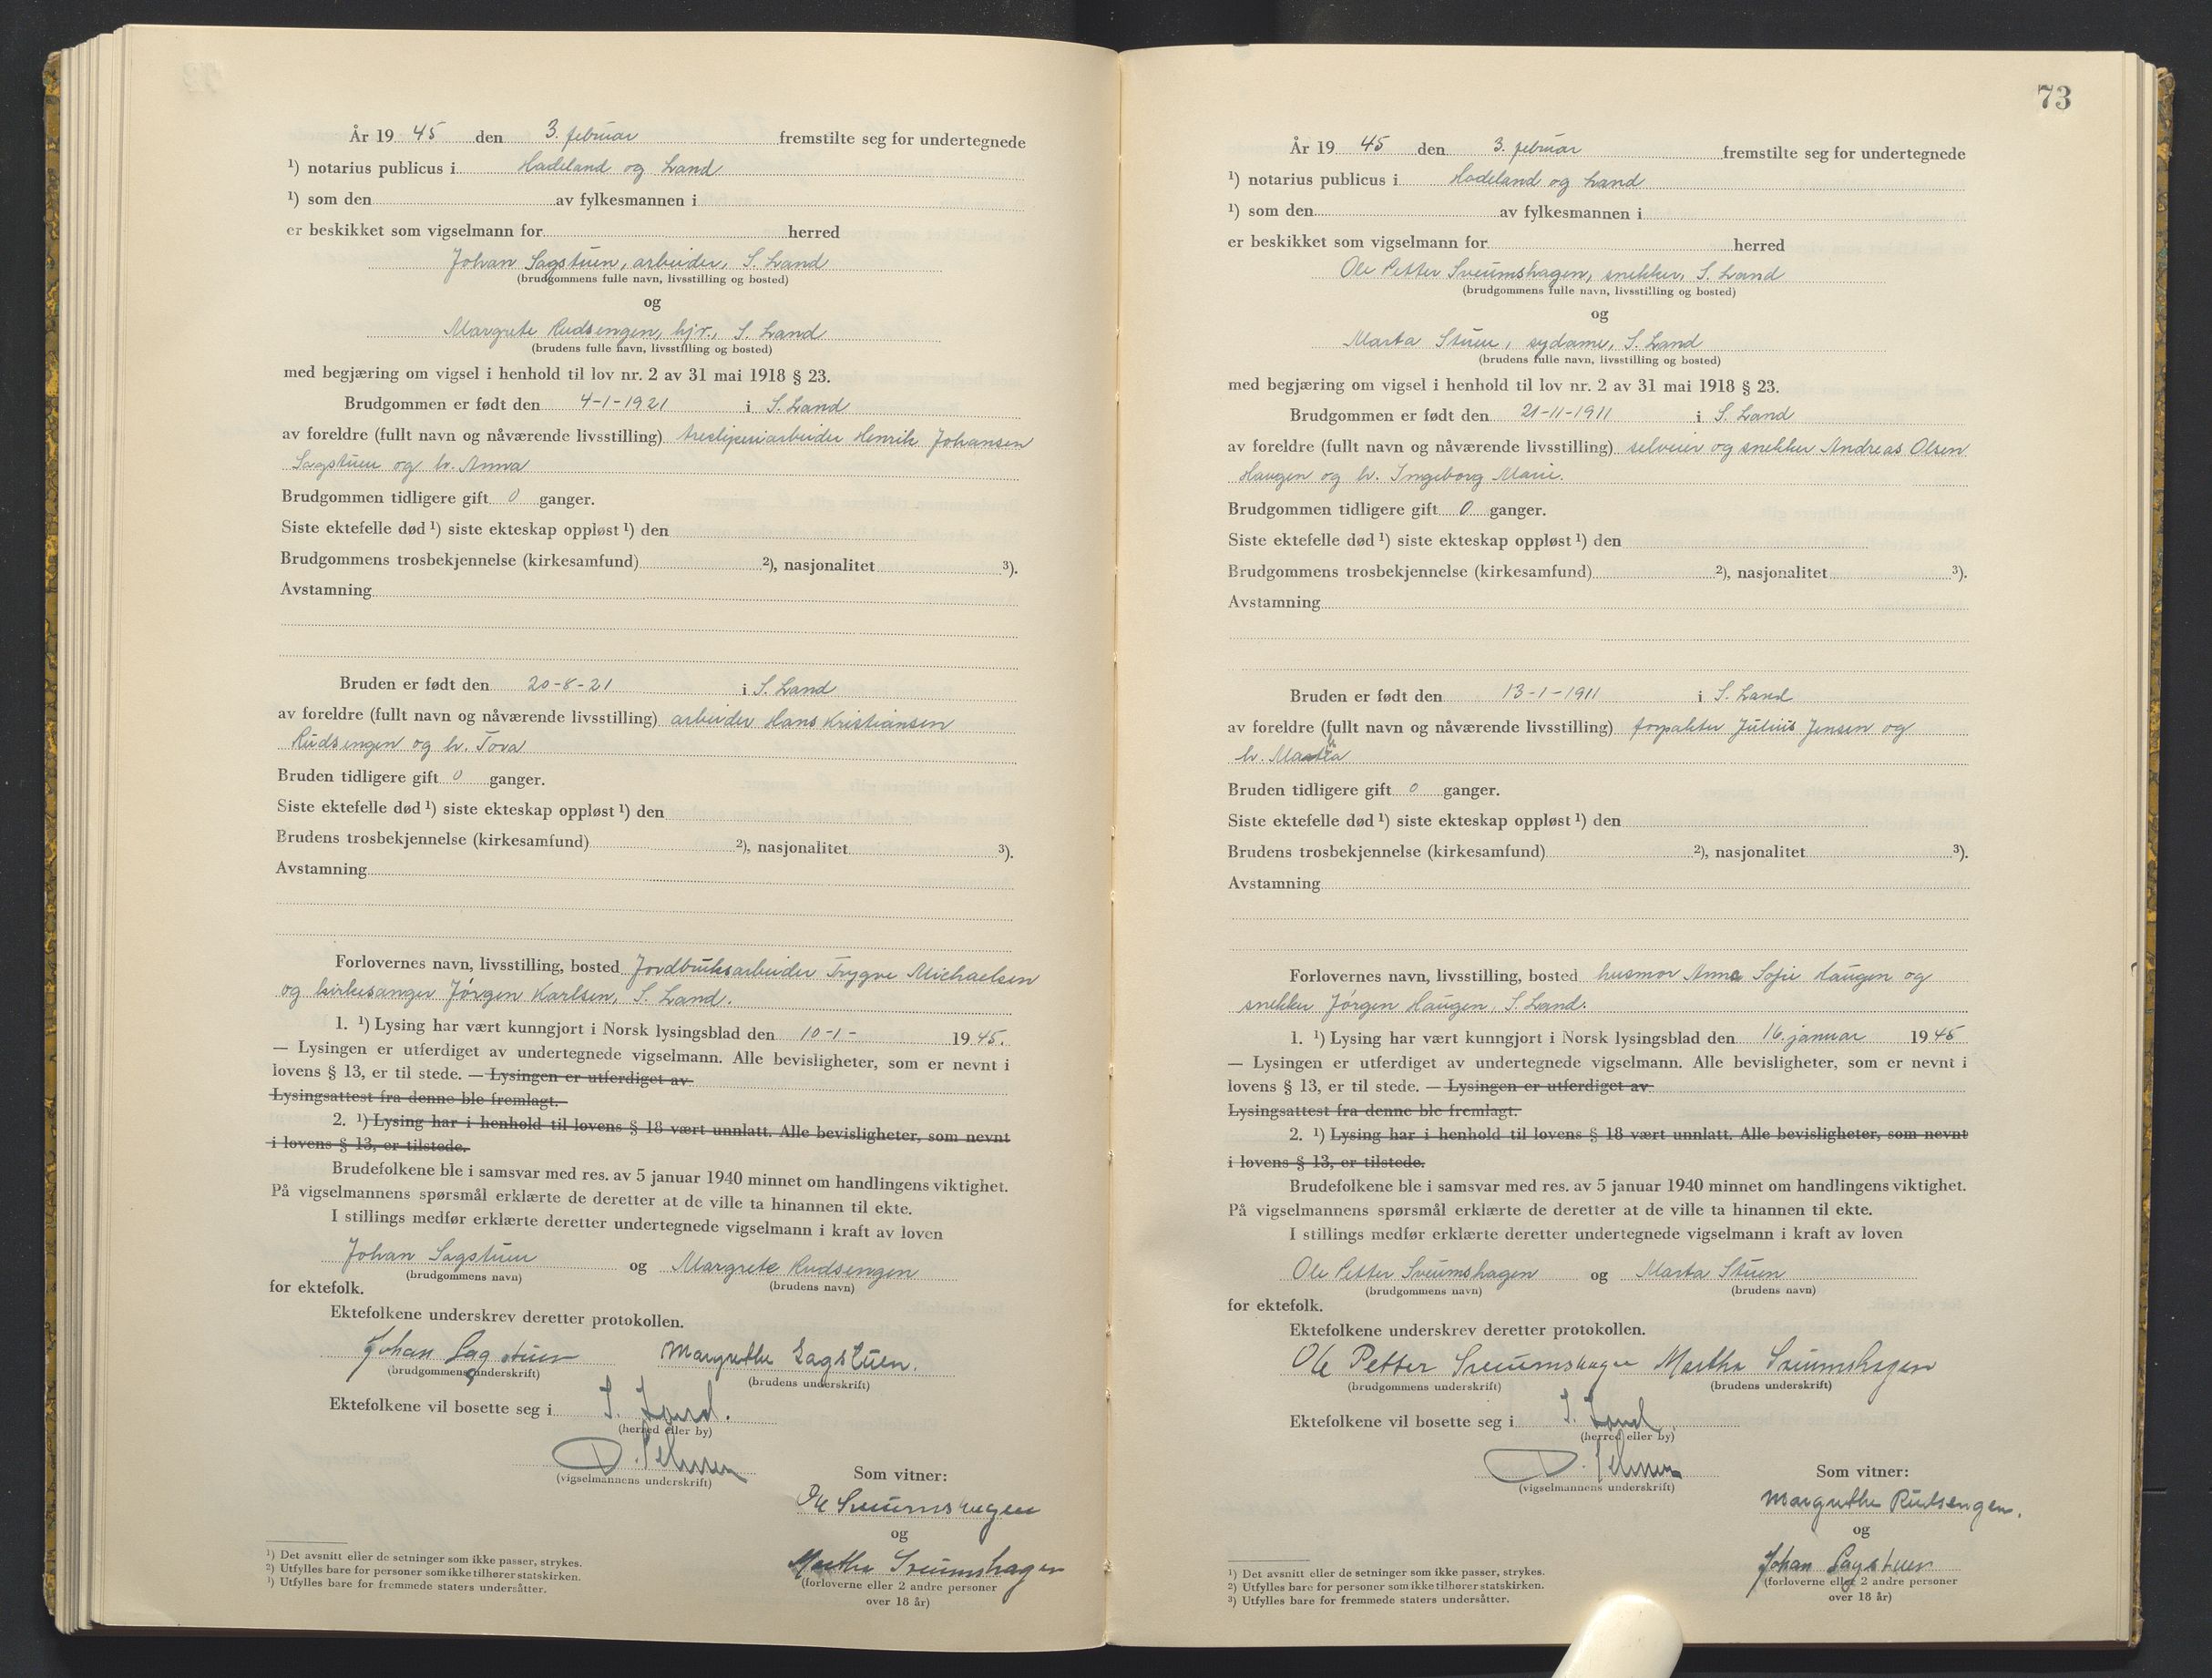 År 19 45 den 3. februar fremstilte seg for undertegnede
¹) notarius publicus i Hadeland og Land
¹) som den av fylkesmannen i
er beskikket som vigselmann for herred
Johan Sagstuen, arbeider, S. Land
(brudgommens fulle navn, livsstilling og bosted)
og
Margrete Rudsengen, hjv., S. Land
(brudens fulle navn, livsstilling og bosted)
med begjæring om vigsel i henhold til lov nr. 2 av 31 mai 1918 § 23.
Brudgommen er født den 4-1-1921 i S. Land
av foreldre (fullt navn og nåværende livsstilling) tresliperiarbeider Henrik Johansen
Sagstuen og h. Anna
Brudgommen tidligere gift 0 ganger.
Siste ektefelle død ¹) siste ekteskap oppløst ¹) den
Brudgommens trosbekjennelse (kirkesamfund) ²), nasjonalitet ³).
Avstamning
Bruden er født den 20-8-21 i S. Land
av foreldre (fullt navn og nåværende livsstilling) arbeider Hans Kristiansen
Rudsengen og h. Tora
Bruden tidligere gift 0 ganger.
Siste ektefelle død ¹) siste ekteskap oppløst ¹) den
Brudens trosbekjennelse (kirkesamfund) ²), nasjonalitet ³).
Avstamning
Forlovernes navn, livsstilling, bosted Jordbruksarbeider Trygve Michaelsen
og kirkesanger Jørgen Karlsen, S. Land.
1. ¹) Lysing har vært kunngjort i Norsk lysingsblad den 10-1- 19 45.
— Lysingen er utferdiget av undertegnede vigselmann. Alle bevisligheter, som er nevnt i
lovens § 13, er til stede. — Lysingen er utferdiget av
Lysingsattest fra denne ble fremlagt.
2. ¹) Lysing har i henhold til lovens § 18 vært unnlatt. Alle bevisligheter, som nevnt
i lovens § 13, er tilstede.
Brudefolkene ble i samsvar med res. av 5 januar 1940 minnet om handlingens viktighet.
På vigselmannens spørsmål erklærte de deretter at de ville ta hinannen til ekte.
I stillings medfør erklærte deretter undertegnede vigselmann i kraft av loven
Johan Sagstuen og Margrete Rudsengen
(brudgommens navn) (brudens navn)
for ektefolk.
Ektefolkene underskrev deretter protokollen.
Johan Sagstuen Margrethe Sagstuen.
(brudgommens underskrift) (brudens underskrift)
Ektefolkene vil bosette seg i S. Land.
(herred eller by)
(vigselmannens underskrift)
Som vitner:
Ole Sveumshagen
og
Martha Sveumshagen
(forloverne eller 2 andre personer
over 18 år)
¹) Det avsnitt eller de setninger som ikke passer, strykes.
²) Utfylles bare for personer som ikke tilhører statskirken.
³) Utfylles bare for fremmede staters undersåtter.
73
År 19 45 den 3. februar fremstilte seg for undertegnede
¹) notarius publicus i Hadeland og Land
¹) som den av fylkesmannen i
er beskikket som vigselmann for herred
Ole Petter Sveumshagen, snekker, S. Land
(brudgommens fulle navn, livsstilling og bosted)
og
Marta Stuen, sydame, S. Land
(brudens fulle navn, livsstilling og bosted)
med begjæring om vigsel i henhold til lov nr. 2 av 31 mai 1918 § 23.
Brudgommen er født den 21-11-1911 i S. Land
av foreldre (fullt navn og nåværende livsstilling) selveier og snekker Andreas Olsen
Haugen og h. Ingeborg Marie.
Brudgommen tidligere gift 0 ganger.
Siste ektefelle død ¹) siste ekteskap oppløst ¹) den
Brudgommens trosbekjennelse (kirkesamfund) ²), nasjonalitet ³).
Avstamning
Bruden er født den 13-1-1911 i S. Land
av foreldre (fullt navn og nåværende livsstilling) forpakter Julius Jensen og
h.
Bruden tidligere gift 0 ganger.
Siste ektefelle død ¹) siste ekteskap oppløst ¹) den
Brudens trosbekjennelse (kirkesamfund) ²), nasjonalitet ³).
Avstamning
Forlovernes navn, livsstilling, bosted husmor Anna Sofie Haugen og
snekker Jørgen Haugen, S. Land.
1. ¹) Lysing har vært kunngjort i Norsk lysingsblad den 16. januar 19 45
— Lysingen er utferdiget av undertegnede vigselmann. Alle bevisligheter, som er nevnt i
lovens § 13, er til stede. — Lysingen er utferdiget av
Lysingsattest fra denne ble fremlagt.
2. ¹) Lysing har i henhold til lovens § 18 vært unnlatt. Alle bevisligheter, som nevnt
i lovens § 13, er tilstede.
Brudefolkene ble i samsvar med res. av 5 januar 1940 minnet om handlingens viktighet.
På vigselmannens spørsmål erklærte de deretter at de ville ta hinannen til ekte.
I stillings medfør erklærte deretter undertegnede vigselmann i kraft av loven
Ole Petter Sveumshagen og Marta Stuen
(brudgommens navn) (brudens navn)
for ektefolk.
Ektefolkene underskrev deretter protokollen.
Ole Petter Sveumshagen Martha Sveumshagen
(brudgommens underskrift) (brudens underskrift)
Ektefolkene vil bosette seg i S. Land
(herred eller by)
(vigselmannens underskrift)
Som vitner:
Margrethe Rudsengen.
og
Johan Sagstuen
(forloverne eller 2 andre personer
over 18 år)
¹) Det avsnitt eller de setninger som ikke passer, strykes.
²) Utfylles bare for personer som ikke tilhører statskirken.
³) Utfylles bare for fremmede staters undersåtter.